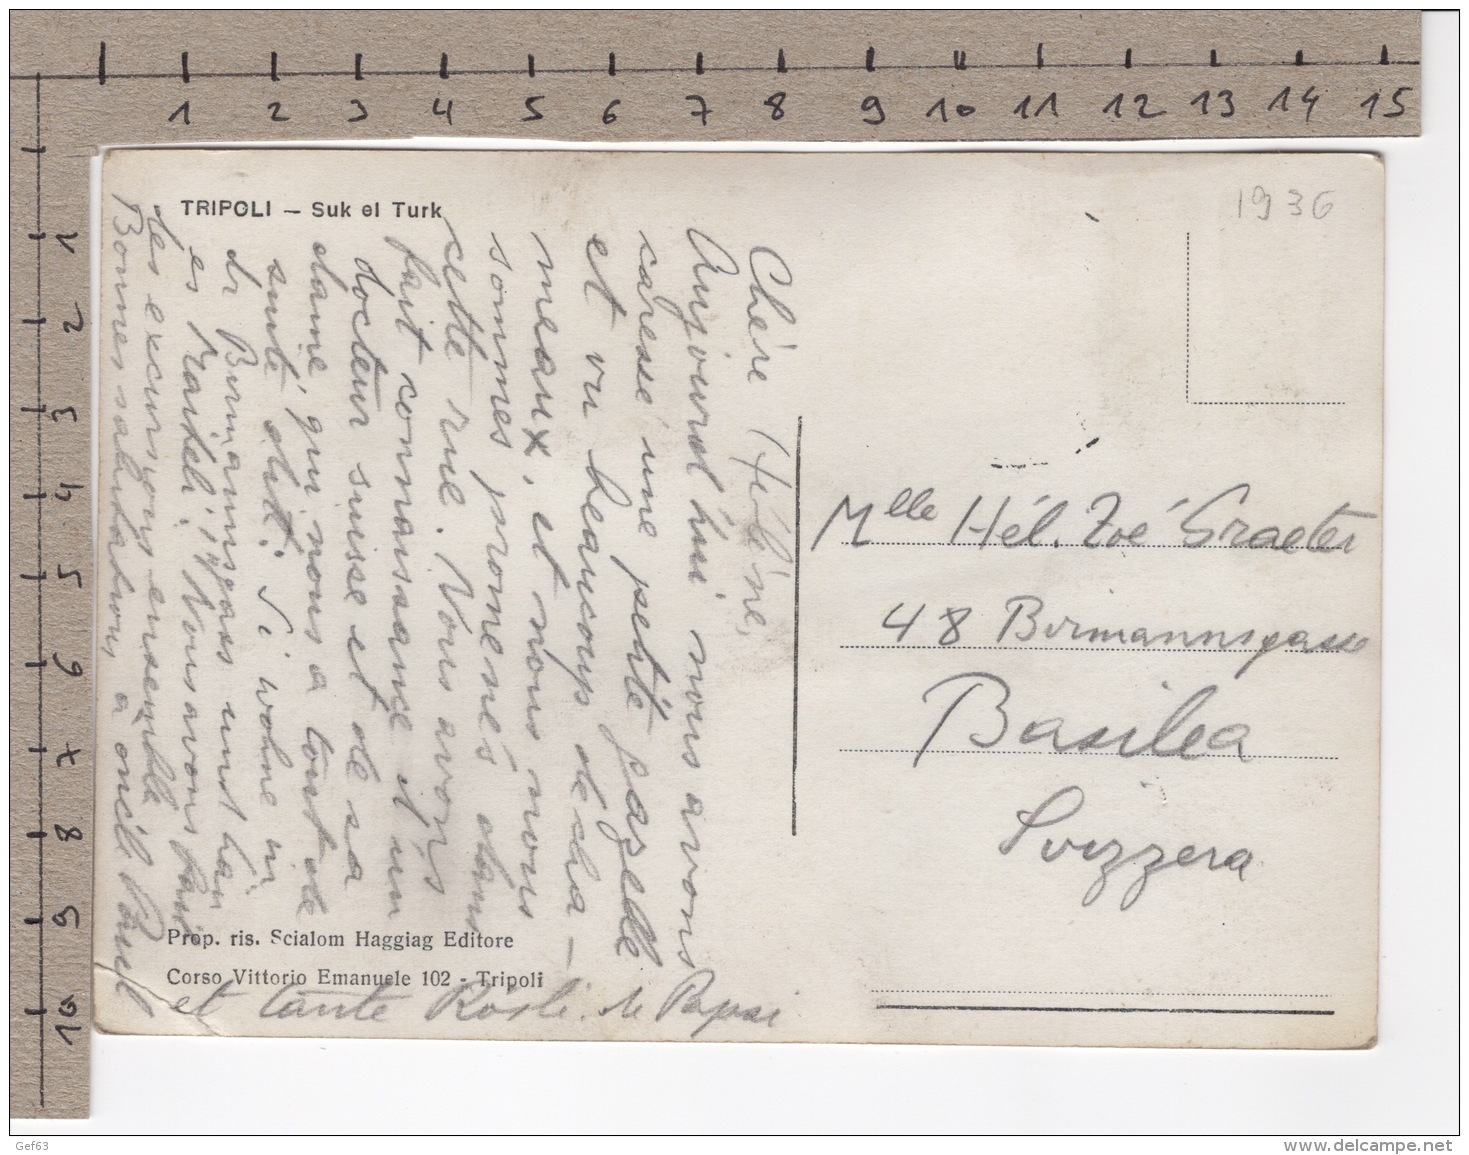 1 2 3 4 5 6 7 8 9 10 11 12 13 14 15
1
2
3
4
5
6
7
8
9
10
TRIPOLI — Suk el Turk
1936
Chère Hélène,
Aujourd'hui nous avons
caressé une petite gazelle
et vu beaucoup de cha-
meaux, et nous nous
sommes promenés dans
cette rue. Nous avons
fait connaissance d'un
docteur suisse et de sa
dame qui nous a tout de
suite dit: Si wohne in
dr Birmannsgass und
es Maiteli. Nous avons fait
des excursions ensemble
Bonnes salutations à oncle Paul
et tante Rösli. Papai
Prop. ris. Scialom Haggiag Editore
Corso Vittorio Emanuele 102 - Tripoli
Mlle Hél. Zoé Graeter
48 Birmannsgasse
Basilea
Svizzera
Gef63
www.delcampe.net